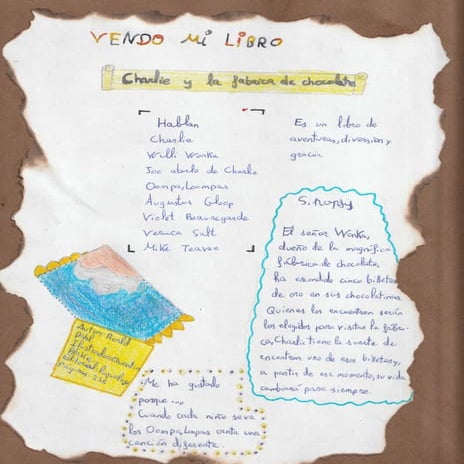 VENDO MI LIBRO
Charlie y la fabrica de chocolate
Hablan
Charlie
Willi Wonka
Joe abuelo de Charlie
Oompa, Loompas
Augustus Gloop
Violet Beauregarde
Veruca Salt
Mike Teavee
Es un libro de
aventuras, diversion y
gracia
Sinopsis
El señor Wonka,
dueño de la magnífica
fábrica de chocolate,
ha escondido cinco billetes
de oro en sus chocolatinas
Quienes los encuentren serán
los elegidos para visitar la fábri-
ca, Charlie tiene la suerte de
encontrar uno de esos billetes y,
a partir de ese momento, su vida
cambiará para siempre.
Autor: Roald
Dahl
Me ha gustado
porque...
Cuando cada niño se va
los Oompa, Loompas canta una
canción diferente.